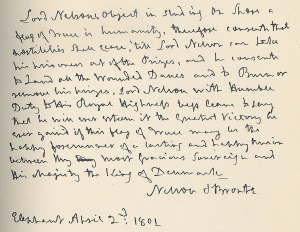 Lord Nelsons object in sending on Shore a
flag of Truce is humanity, therefore consents that
hostilities shall cease, 'till Lord Nelson can take
his prisoners out of the Prizes, and he consents
to land all the Wounded Danes and to Burn or
remove his prizes. Lord Nelson with humble
Duty to His Royal Highness begs leave to say
that he will ever esteem it the Greatest Victory he
ever gained if this flag of Truce may be the
happy forerunner of a lasting and happy Union
between my most Gracious Sovereign and
His Majesty the King of Denmark
Nelson & Bronte
Elephant April 2d: 1801